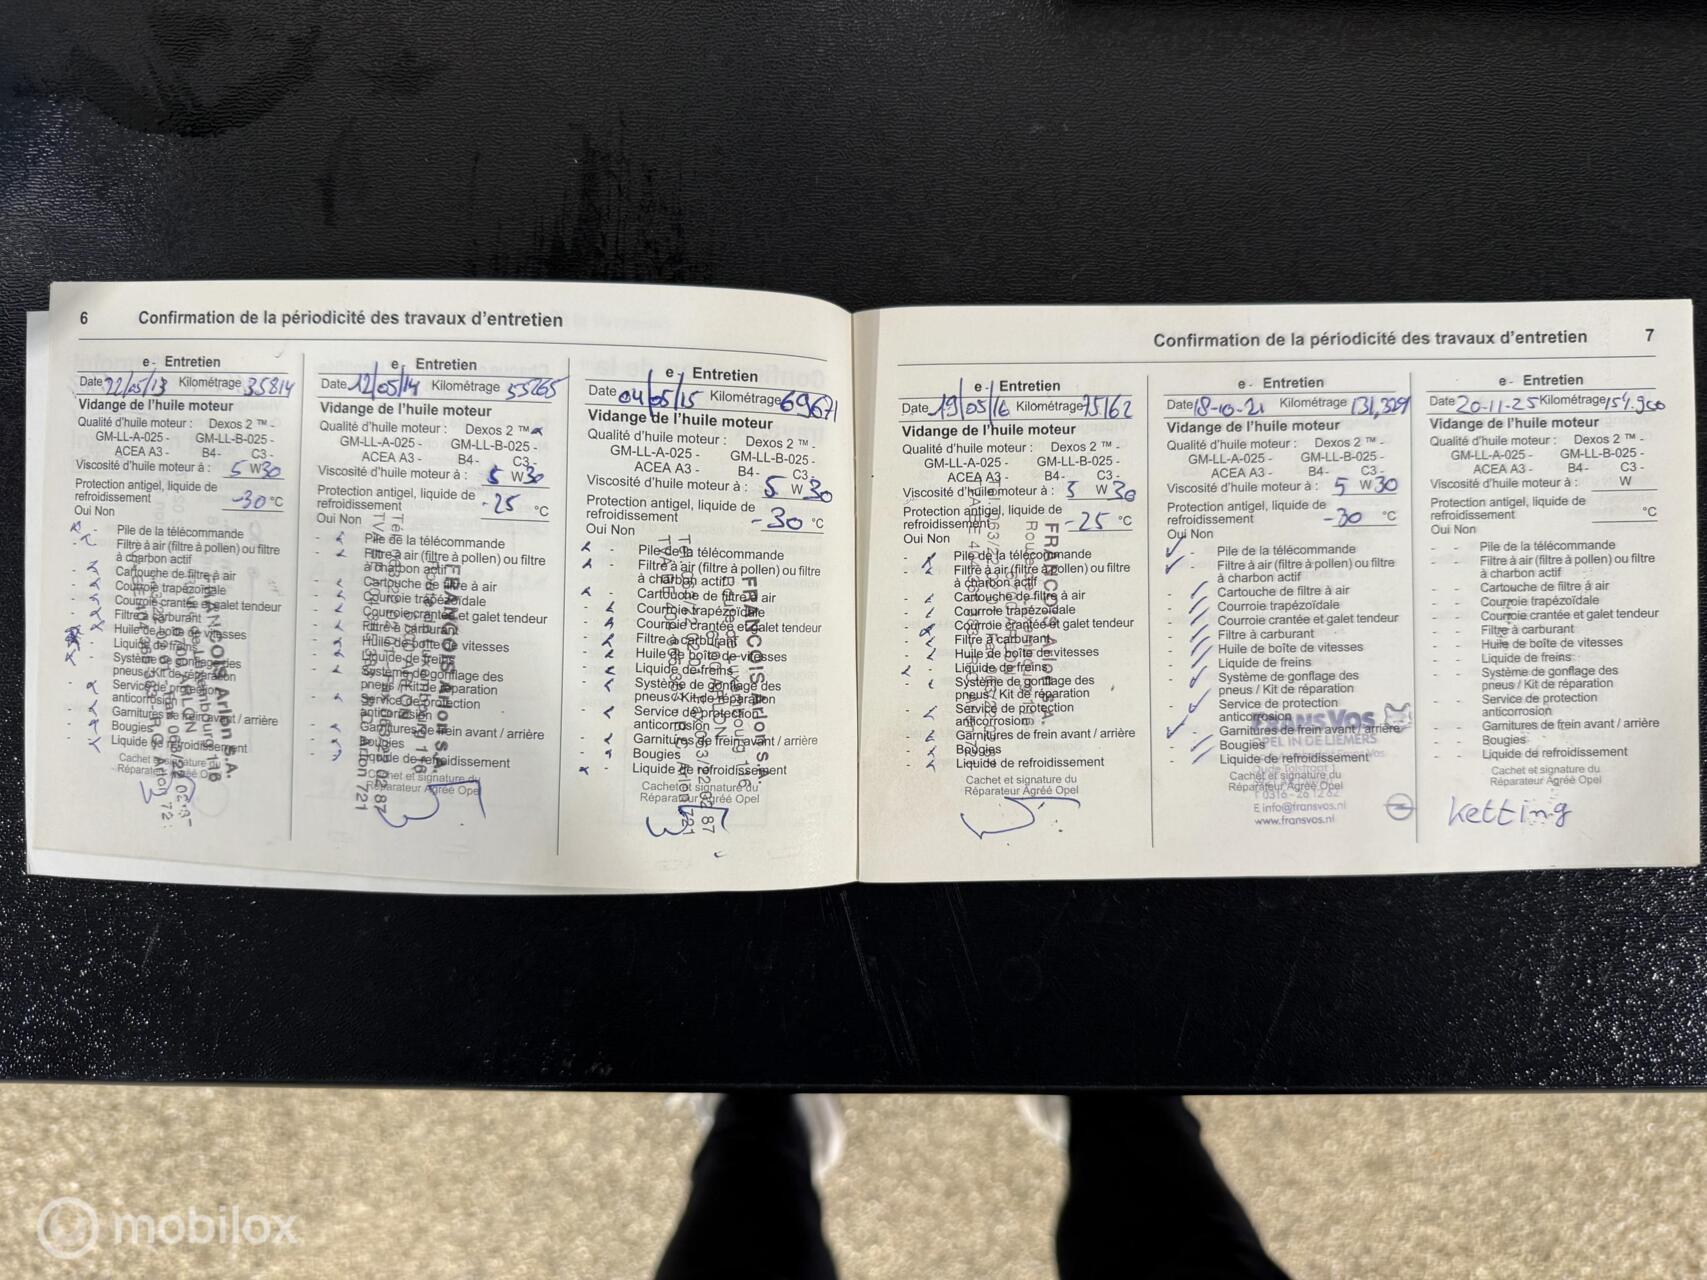 6 Confirmation de la périodicité des travaux d'entretien
e - Entretien
Date 22/05/13 Kilométrage 35814
Vidange de l'huile moteur
Qualité d'huile moteur : Dexos 2 ™ -
GM-LL-A-025 - GM-LL-B-025 -
ACEA A3 - B4- C3 -
Viscosité d'huile moteur à : 5 W 30
Protection antigel, liquide de
refroidissement -30 °C
Oui Non
Pile de la télécommande
Filtre à air (filtre à pollen) ou filtre
à charbon actif
Cartouche de filtre à air
Courroie trapézoïdale
Courroie crantée et galet tendeur
Filtre à carburant
Huile de boîte de vitesses
Liquide de freins
Système de gonflage des
pneus / Kit de réparation
Service de protection
anticorrosion
Garnitures de frein avant / arrière
Bougies
Liquide de refroidissement
Cachet et signature du
Réparateur Agréé Opel
FRANCOIS Arlon S.A.
e - Entretien
Date 12/05/14 Kilométrage 55265
Vidange de l'huile moteur
Qualité d'huile moteur : Dexos 2 ™
GM-LL-A-025 - GM-LL-B-025 -
ACEA A3 - B4- C3
Viscosité d'huile moteur à : 5 W 30
Protection antigel, liquide de
refroidissement -25 °C
Oui Non
Pile de la télécommande
Filtre à air (filtre à pollen) ou filtre
à charbon actif
Cartouche de filtre à air
Courroie trapézoïdale
Courroie crantée et galet tendeur
Filtre à carburant
Huile de boîte de vitesses
Liquide de freins
Système de gonflage des
pneus / Kit de réparation
Service de protection
anticorrosion
Garnitures de frein avant / arrière
Bougies
Liquide de refroidissement
Cachet et signature du
Réparateur Agréé Opel
FRANCOIS Arlon S.A.
e - Entretien
Date 04/05/15 Kilométrage 69671
Vidange de l'huile moteur
Qualité d'huile moteur : Dexos 2 ™ -
GM-LL-A-025 - GM-LL-B-025 -
ACEA A3 - B4- C3 -
Viscosité d'huile moteur à : 5 W 30
Protection antigel, liquide de
refroidissement -30 °C
Oui Non
Pile de la télécommande
Filtre à air (filtre à pollen) ou filtre
à charbon actif
Cartouche de filtre à air
Courroie trapézoïdale
Courroie crantée et galet tendeur
Filtre à carburant
Huile de boîte de vitesses
Liquide de freins
Système de gonflage des
pneus / Kit de réparation
Service de protection
anticorrosion
Garnitures de frein avant / arrière
Bougies
Liquide de refroidissement
Cachet et signature du
Réparateur Agréé Opel
FRANCOIS Arlon S.A.
Confirmation de la périodicité des travaux d'entretien 7
e - Entretien
Date 19/05/16 Kilométrage 75162
Vidange de l'huile moteur
Qualité d'huile moteur : Dexos 2 ™ -
GM-LL-A-025 - GM-LL-B-025 -
ACEA A3 - B4- C3 -
Viscosité d'huile moteur à : 5 W 30
Protection antigel, liquide de
refroidissement -25 °C
Oui Non
Pile de la télécommande
Filtre à air (filtre à pollen) ou filtre
à charbon actif
Cartouche de filtre à air
Courroie trapézoïdale
Courroie crantée et galet tendeur
Filtre à carburant
Huile de boîte de vitesses
Liquide de freins
Système de gonflage des
pneus / Kit de réparation
Service de protection
anticorrosion
Garnitures de frein avant / arrière
Bougies
Liquide de refroidissement
Cachet et signature du
Réparateur Agréé Opel
FRANCOIS Arlon S.A.
e - Entretien
Date 18-10-21 Kilométrage 131,329
Vidange de l'huile moteur
Qualité d'huile moteur : Dexos 2 ™ -
GM-LL-A-025 - GM-LL-B-025 -
ACEA A3 - B4- C3 -
Viscosité d'huile moteur à : 5 W 30
Protection antigel, liquide de
refroidissement -30 °C
Oui Non
Pile de la télécommande
Filtre à air (filtre à pollen) ou filtre
à charbon actif
Cartouche de filtre à air
Courroie trapézoïdale
Courroie crantée et galet tendeur
Filtre à carburant
Huile de boîte de vitesses
Liquide de freins
Système de gonflage des
pneus / Kit de réparation
Service de protection
anticorrosion
FRANSVOS
Garnitures de frein avant / arrière
OPEL IN DE LIEMERS
Bougies
Liquide de refroidissement
Cachet et signature du
Réparateur Agréé Opel
T 0316 - 26 12 62
E info@fransvos.nl
www.fransvos.nl
e - Entretien
Date 20-11-25 Kilométrage 154.900
Vidange de l'huile moteur
Qualité d'huile moteur : Dexos 2 ™ -
GM-LL-A-025 - GM-LL-B-025 -
ACEA A3 - B4- C3 -
Viscosité d'huile moteur à : W
Protection antigel, liquide de
refroidissement °C
Oui Non
Pile de la télécommande
Filtre à air (filtre à pollen) ou filtre
à charbon actif
Cartouche de filtre à air
Courroie trapézoïdale
Courroie crantée et galet tendeur
Filtre à carburant
Huile de boîte de vitesses
Liquide de freins
Système de gonflage des
pneus / Kit de réparation
Service de protection
anticorrosion
Garnitures de frein avant / arrière
Bougies
Liquide de refroidissement
Cachet et signature du
Réparateur Agréé Opel
Ketting
mobilox